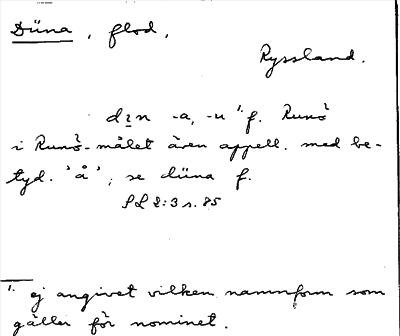 Düna, flod,
Ryssland.
dɪn -a, -u ¹· f. Runö
i Runö-målet även appell. med be-
tyd. 'å', se düna f.
SL 2:3 s. 85
1. ej angivet vilken namnform som
gäller för nominet.